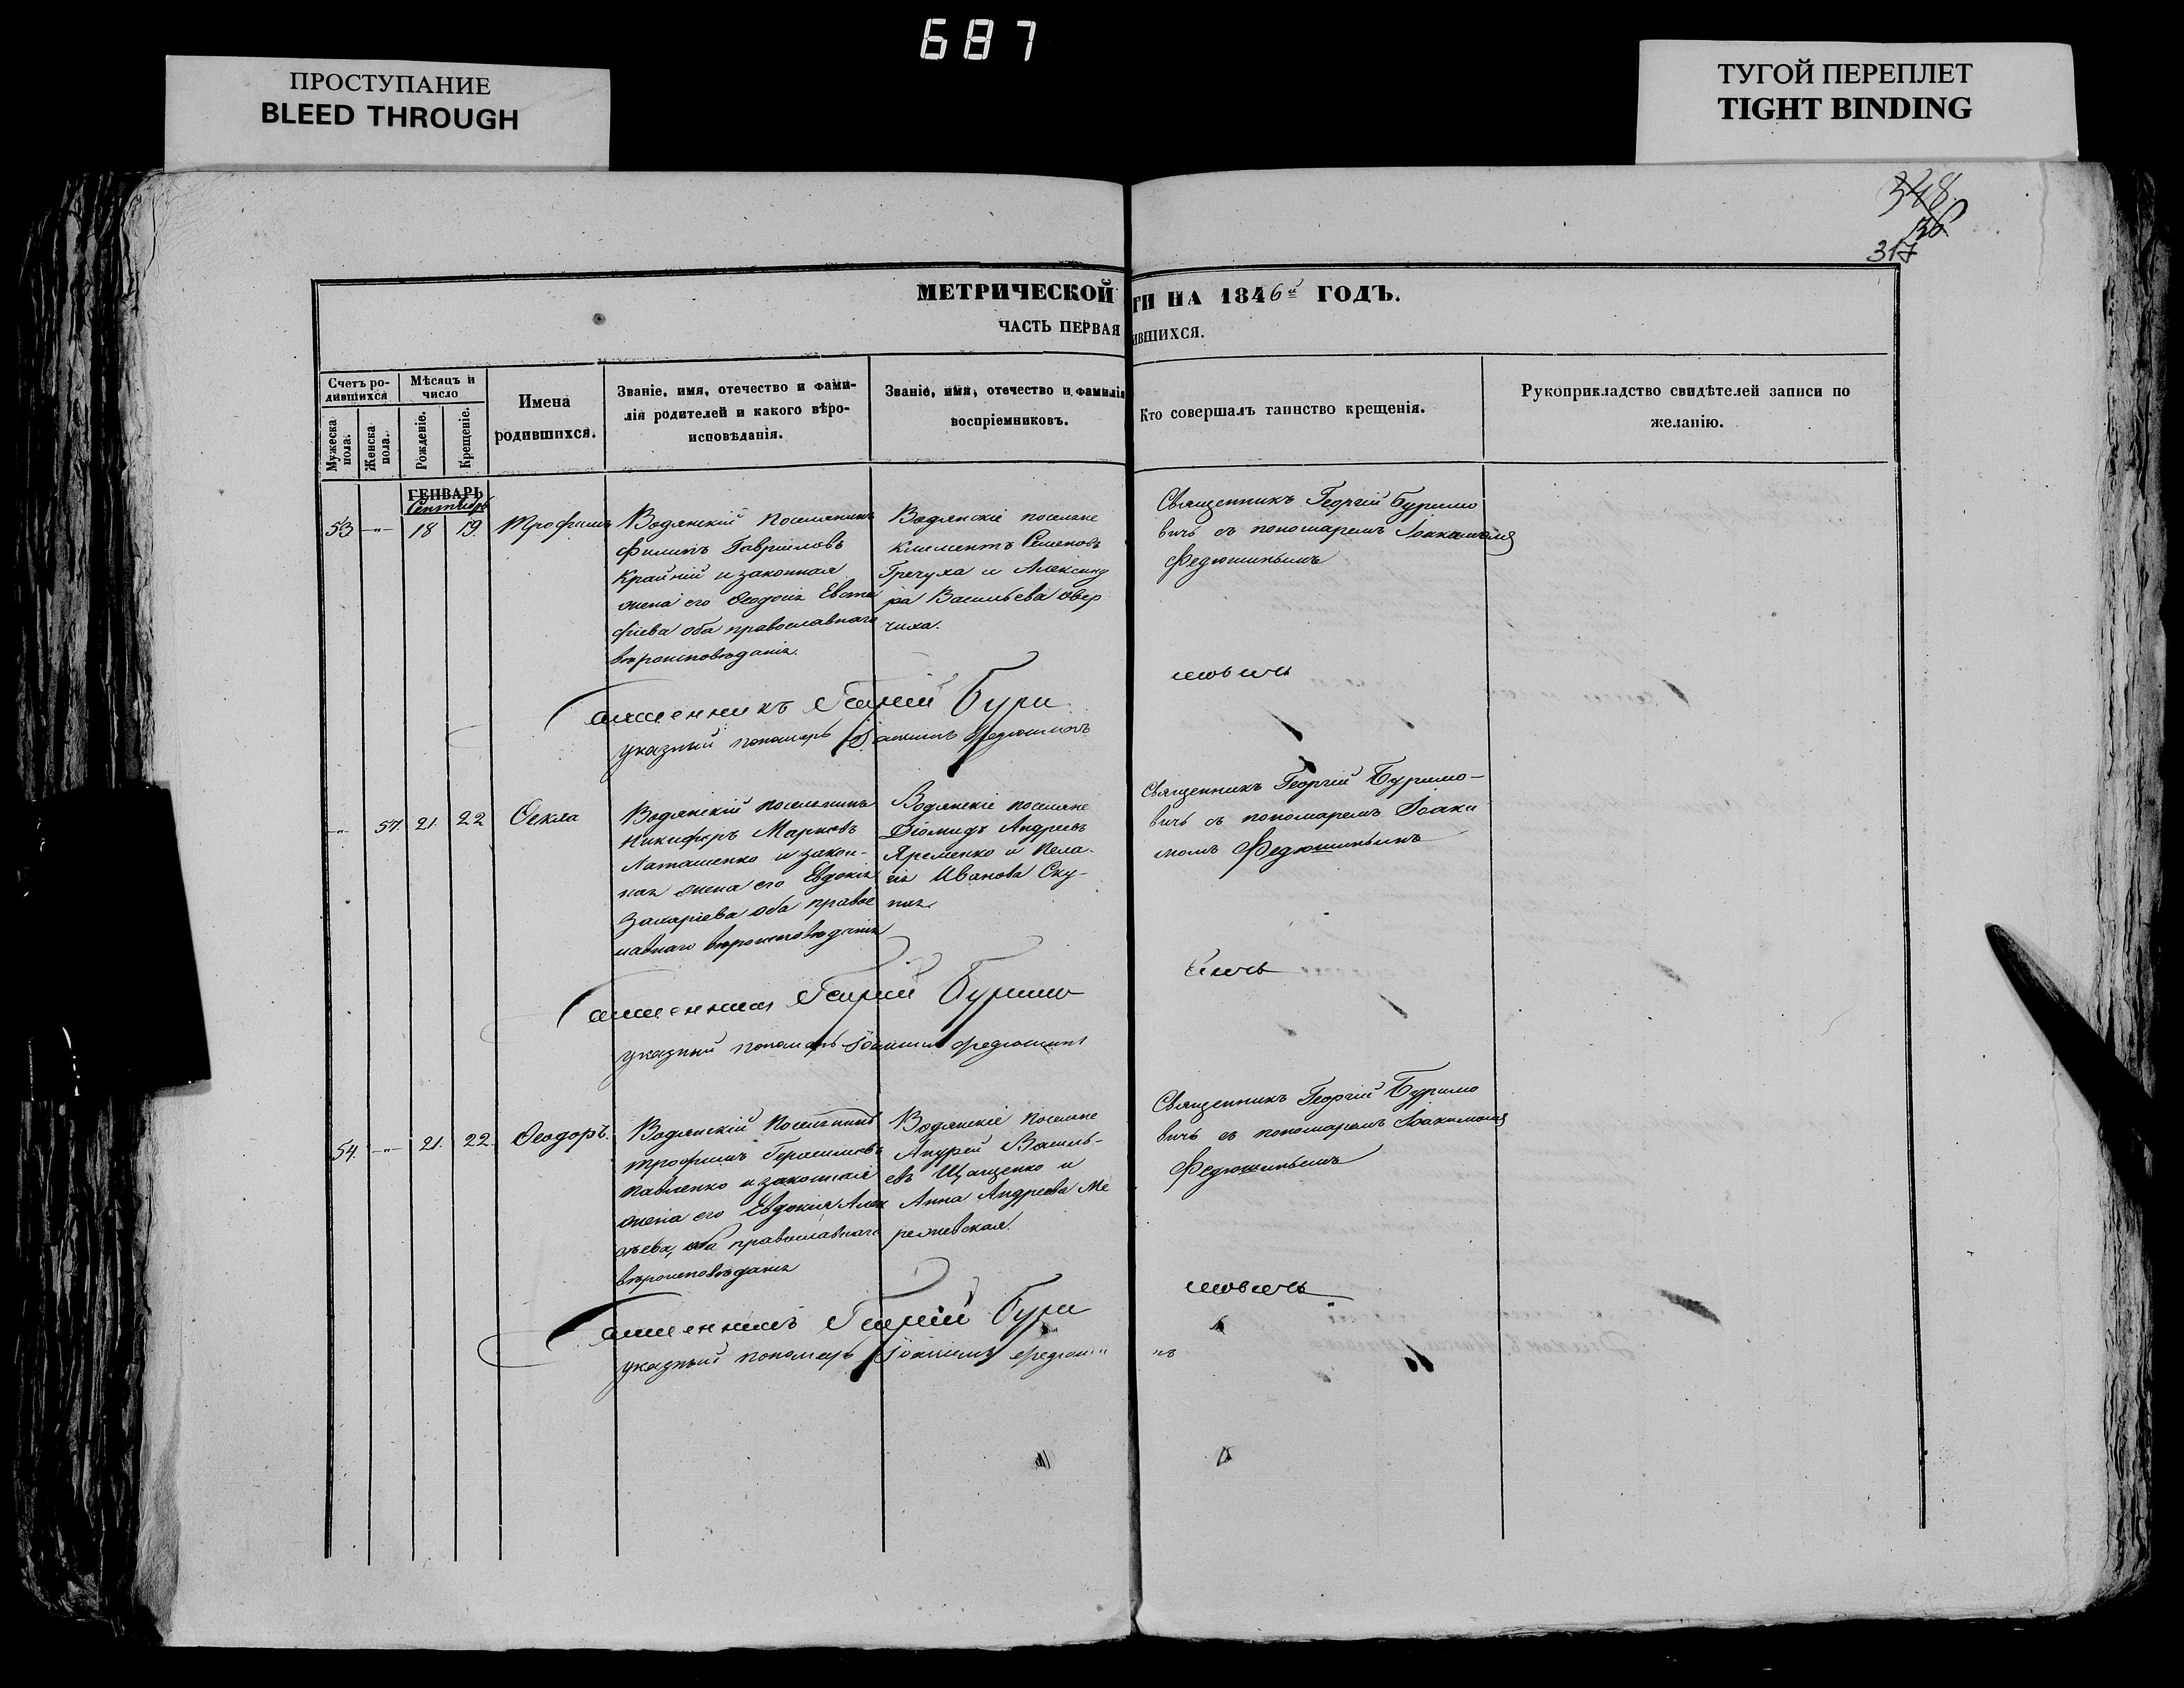 687
ПРОСТУПАНИЕ
BLEED THROUGH
ТУГОЙ ПЕРЕПЛЕТ
TIGHT BINDING
348
317
МЕТРИЧЕСКОЙ ГИ НА 1846й ГОДЪ.
ЧАСТЬ ПЕРВАЯ ИВШИХСЯ.
Счетъ ро-
дившихся
Мужеска пола.
Женска пола.
Мѣсяцъ и
число
Рожденіе.
Крещеніе.
Имена
родившихся.
Званіе, имя, отечество и фами-
лія родителей и какого вѣро-
исповѣданія.
Званіе, имя, отечество и фамилія
воспріемниковъ.
Кто совершалъ таинство крещенія.
Рукоприкладство свидѣтелей записи по
желанію.
ГЕНВАРЬ
Сентябрь
53 -"- 18 19. Трофимъ
Водянскій поселянинъ
Филипъ Гавріиловъ
Крайній и законная
жена его Ѳеодосія Евста
фіева оба православнаго
вѣроисповѣданія.
Водянскіе поселяне
Климентъ Семеновъ
Гречуха и Александ
ра Васильева Овер
чиха.
Священникъ Георгій Буримо
вичъ съ пономаремъ Іоакимомъ
Федюшинымъ
Священникъ Георгій Бури
мовичъ
указный пономарь Іоакимъ Федюшинъ
-"- 57. 21. 22 Ѳекла
Водянскій поселянинъ
Никифоръ Марковъ
Латашенко и закон-
ная жена его Евдокія
Захаріева оба правос
лавнаго вѣроисповѣданія
Водянскіе поселяне
Діомидъ Андреевъ
Яременко и Пела-
гія Иванова Ску-
пая.
Священникъ Георгій Буримо-
вичъ съ пономаремъ Іоаки
момъ Федюшинымъ
Священникъ Георгій Буримо
вичъ
указный пономарь Іоакимъ Федюшинъ
54. -"- 21. 22. Ѳеодоръ.
Водянскій поселянинъ
Трофимъ Герасимовъ
Павленко и законная
жена его Евдокия Алек
сѣева, оба православнаго
вѣроисповѣданія
Водянскіе поселяне
Андрей Василь-
евъ Щащенко и
Анна Андреева Ме
режевская.
Священникъ Георгій Буримо
вичъ съ пономаремъ Іоакимомъ
Федюшинымъ
Священникъ Георгій Бури
мовичъ
указный пономарь Іоакимъ Федюшинъ